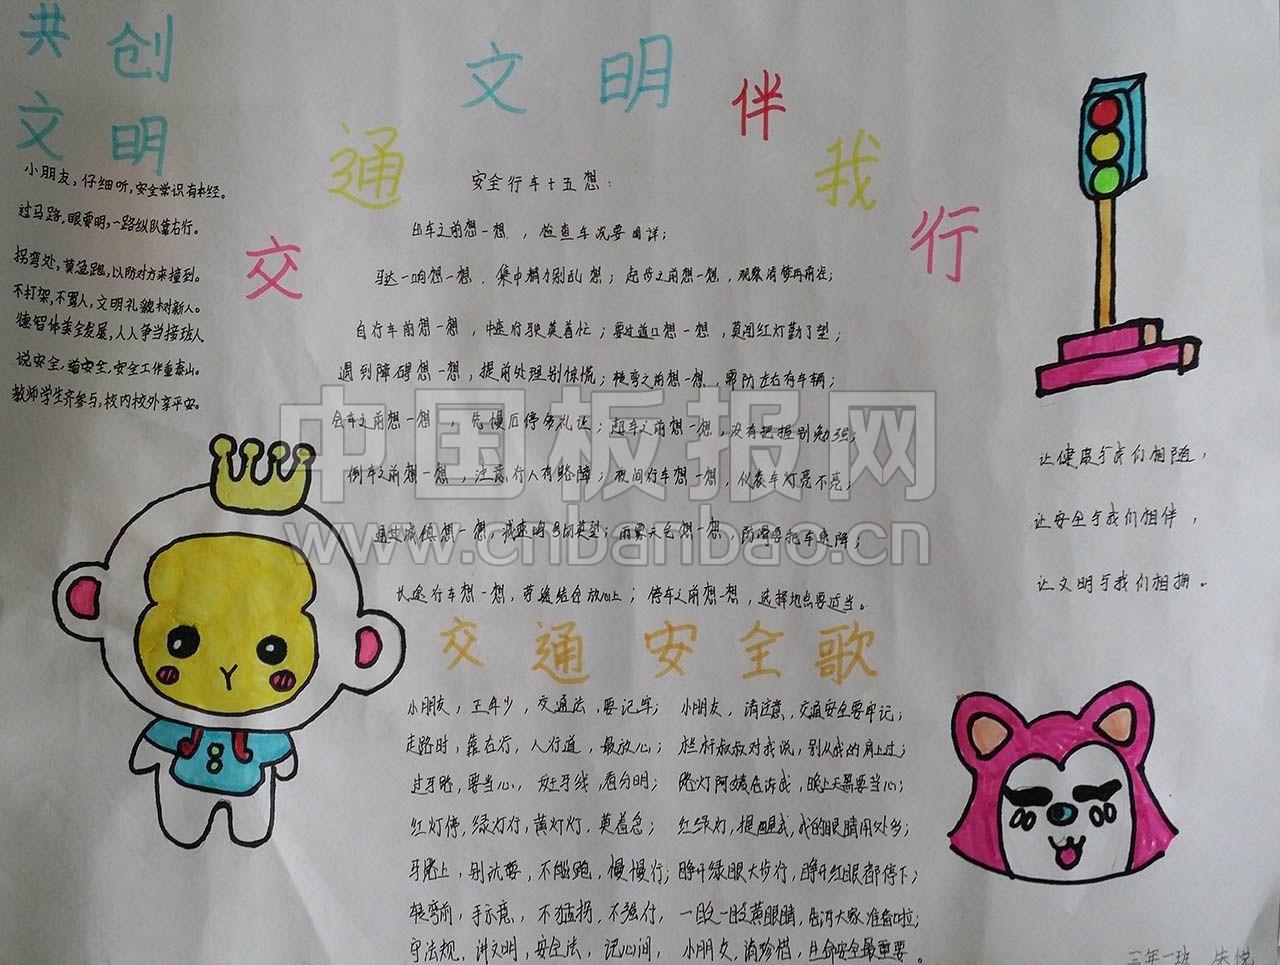 共创
文明
小朋友,仔细听,安全常识有本经。
过马路,眼要明,一路纵队靠右行。
拐弯处,莫急跑,以防对方来撞到。
不打架,不骂人,文明礼貌树新人。
德智体美全发展,人人争当接班人
说安全,道安全,安全工作重泰山。
教师学生齐参与,校内校外享平安。
交通文明伴我行
安全行车十五想:
出车之前想一想,检查车况要周详;
马达一响想一想,集中精力别乱想;起步之前想一想,观察清楚再前往;
自行车前想一想,中速行驶莫着忙;要过道口想一想,莫闯红灯勤了望;
遇到障碍想一想,提前处理别惊慌;转弯之前想一想,需防左右有车辆;
会车之前想一想,先慢后停多礼让;超车之前想一想,没有把握别勉强;
倒车之前想一想,注意行人有路障;夜间行车想一想,仪表车灯亮不亮;
通过城镇想一想,减速鸣号切莫望;雨雾天气想一想,防滑要把车速降;
长途行车想一想,劳逸结合放心上;停车之前想一想,选择地点要适当。
交通安全歌
小朋友,正年少,交通法,要记牢;小朋友,请注意,交通安全要牢记;
走路时,靠右行,人行道,最放心;栏杆叔叔对我说,别从我的肩上过;
过马路,要当心,斑马线,看分明;路灯阿姨告诉我,晚上天黑要当心;
红灯停,绿灯行,黄灯灯,莫着急;红绿灯,提醒我,我的眼睛用处多;
马路上,别玩耍,不能跑,慢慢行;睁开绿眼大步行,睁开红眼都停下;
转弯前,手示意,不猛拐,不强行,一眨一眨黄眼睛,告诉大家准备啦;
守法规,讲文明,安全法,记心间,小朋友,请珍惜,生命安全最重要。
让健康与我们相随,
让安全与我们相伴,
让文明与我们相拥。
三年一班 朱悦
中国板报网
www.cnbanbao.cn